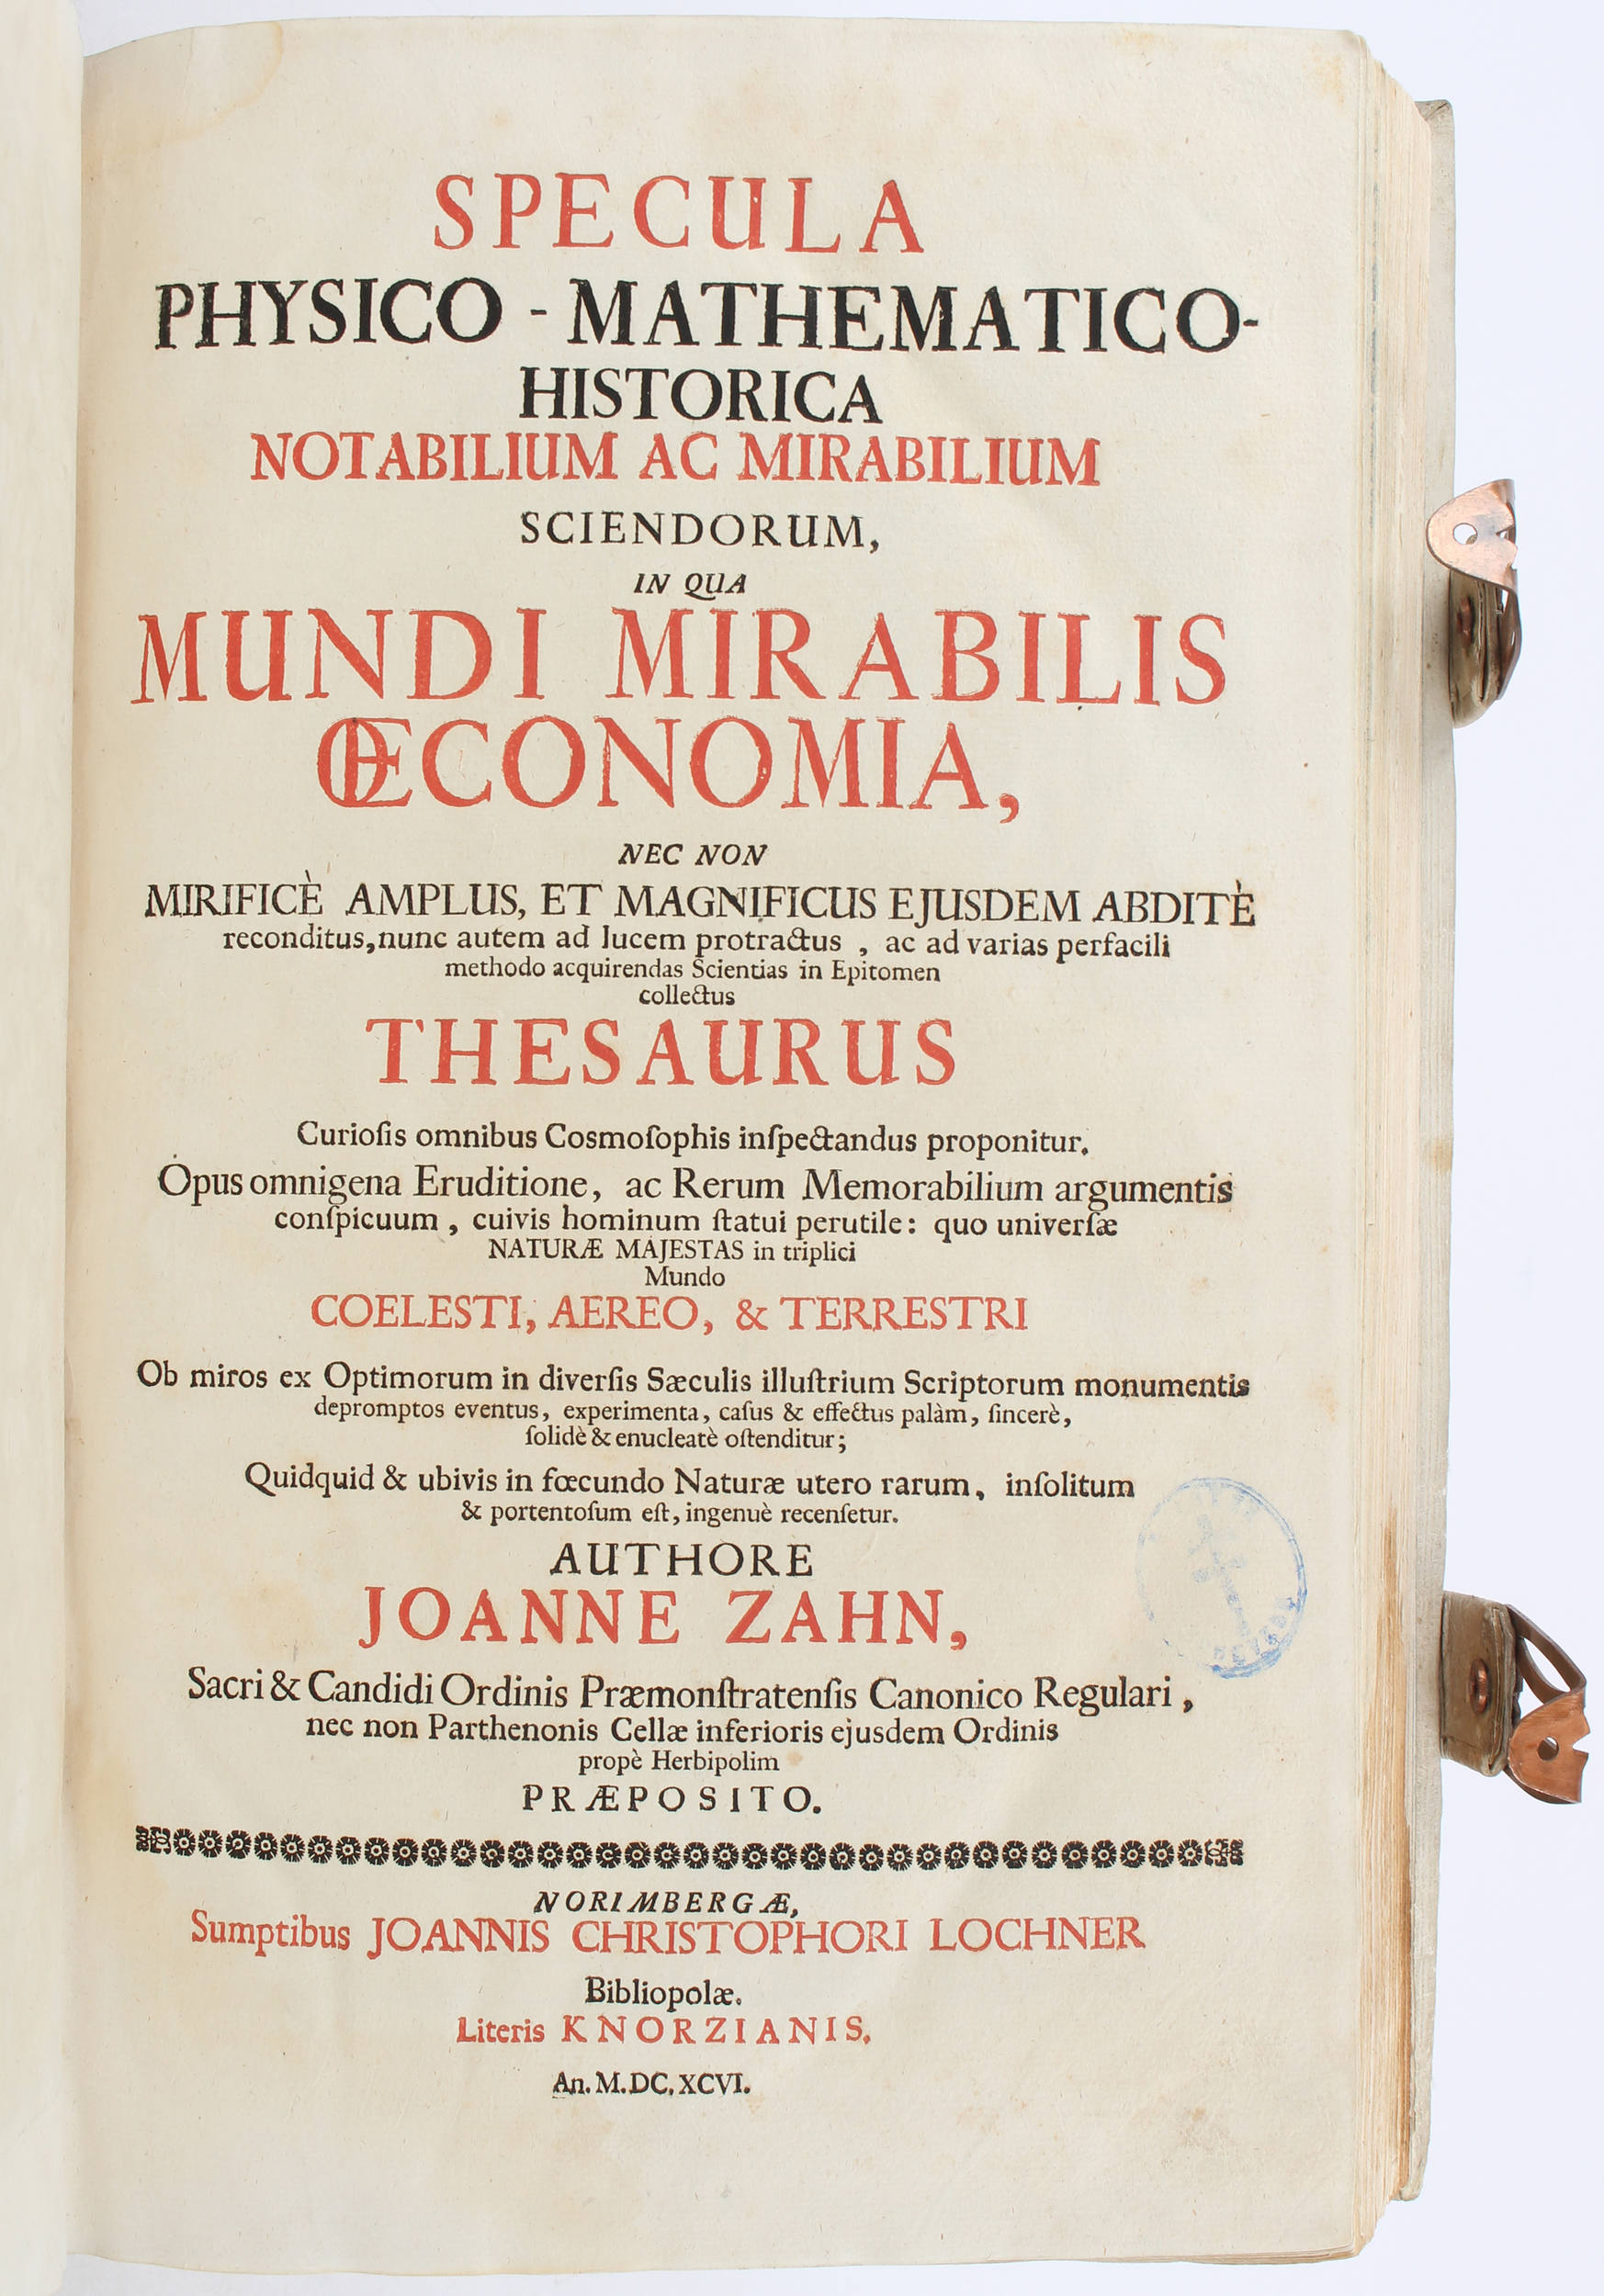 SPECULA
PHYSICO - MATHEMATICO-
HISTORICA
NOTABILIUM AC MIRABILIUM
SCIENDORUM,
IN QUA
MUNDI MIRABILIS
ŒCONOMIA,
NEC NON
MIRIFICÈ AMPLUS, ET MAGNIFICUS EJUSDEM ABDITÈ
reconditus, nunc autem ad lucem protractus , ac ad varias perfacili
methodo acquirendas Scientias in Epitomen
collectus
THESAURUS
Curioſis omnibus Cosmoſophis inſpectandus proponitur.
Opus omnigena Eruditione, ac Rerum Memorabilium argumentis
conſpicuum , cuivis hominum ſtatui perutile: quo univerſæ
NATURÆ MAJESTAS in triplici
Mundo
COELESTI, AEREO, & TERRESTRI
Ob miros ex Optimorum in diverſis Sæculis illuſtrium Scriptorum monumentis
depromptos eventus, experimenta, caſus & effectus palàm, ſincerè,
ſolidè & enucleatè oſtenditur;
Quidquid & ubivis in fœcundo Naturæ utero rarum, inſolitum
& portentoſum eſt, ingenuè recenſetur.
AUTHORE
JOANNE ZAHN,
Sacri & Candidi Ordinis Præmonſtratenſis Canonico Regulari ,
nec non Parthenonis Cellæ inferioris ejusdem Ordinis
propè Herbipolim
PRÆPOSITO.
NORIMBERGÆ,
Sumptibus JOANNIS CHRISTOPHORI LOCHNER
Bibliopolæ.
Literis KNORZIANIS.
An. M.DC.XCVI.